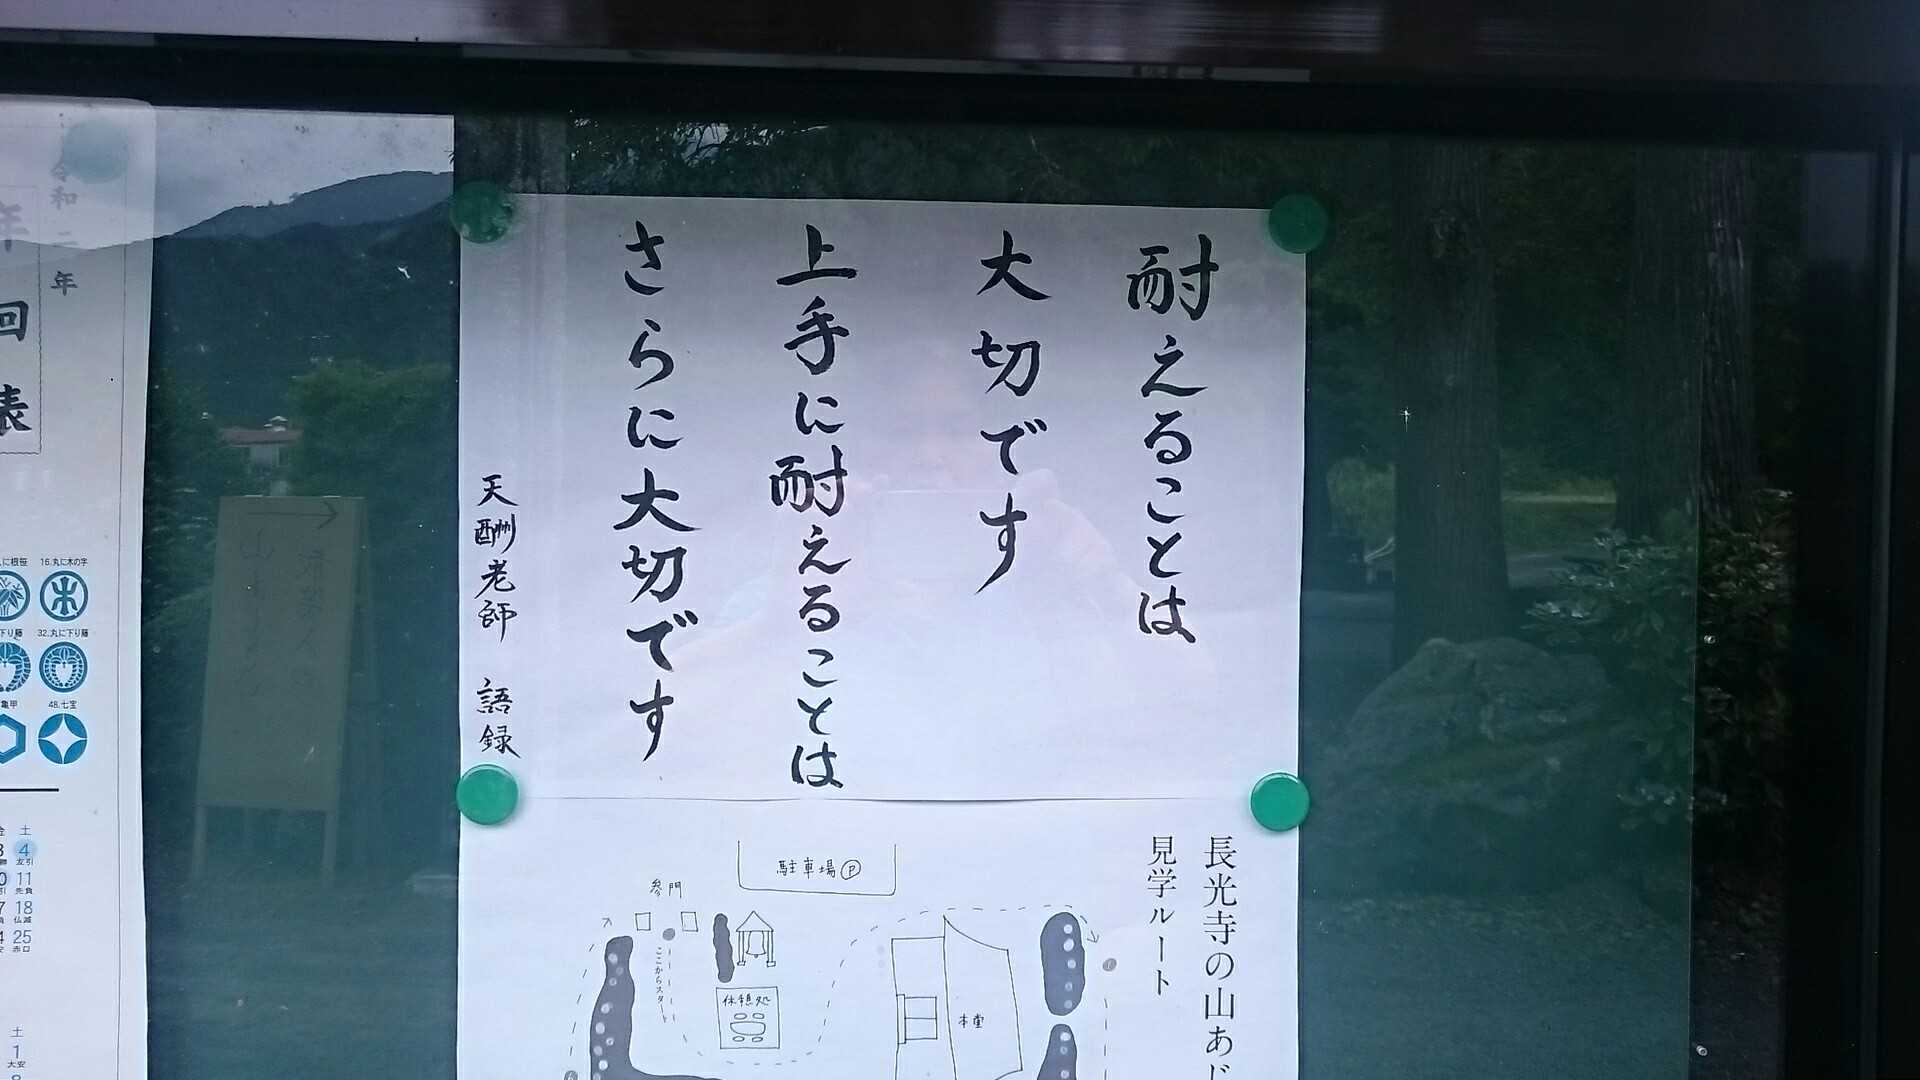 耐えることは
大切です
上手に耐えることは
さらに大切です
天酬老師 語録
長光寺の山あじ
見学ルート
駐車場P
参門
ここからスタート
休憩処
本堂
令和二年
年回表
16.丸に木の字
に根笹
32.丸に下り藤
下り藤
48.七宝
亀甲
土
4
友引
11
先負
18
仏滅
25
赤口
土
1
大安